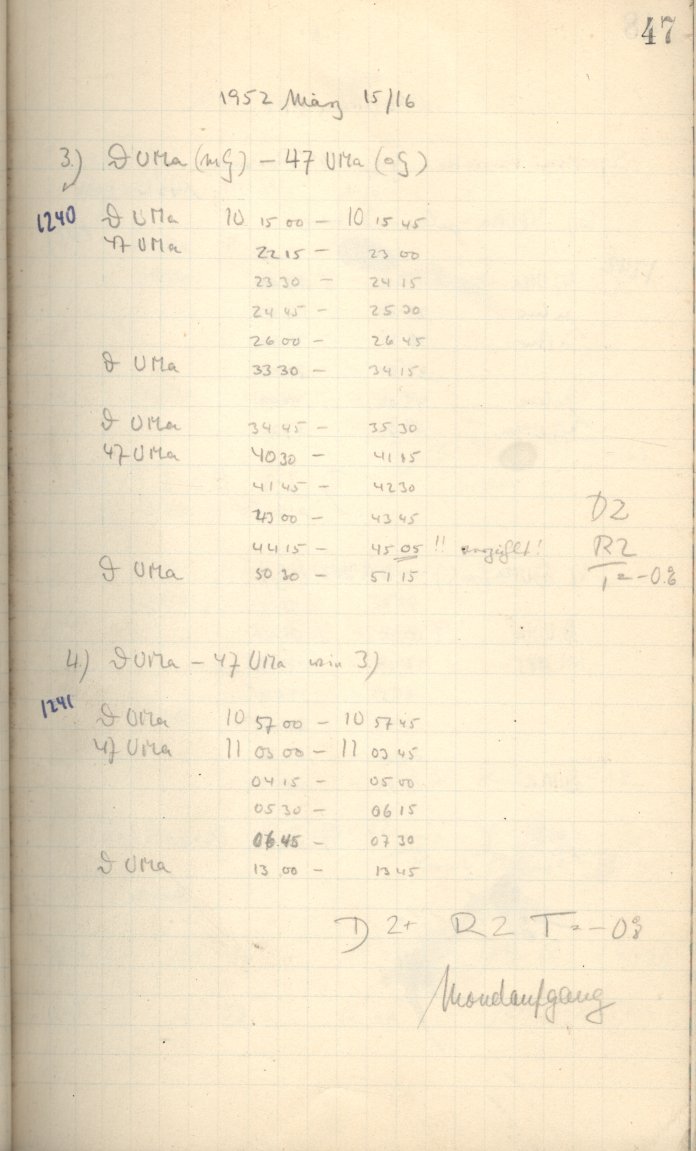 47
1952 März 15/16
3.) ϑ UMa (mG) – 47 UMa (oG)
1240 ϑ UMa 10 15 00 – 10 15 45
47 UMa 22 15 – 23 00
23 30 – 24 15
24 45 – 25 30
26 00 – 26 45
ϑ UMa 33 30 – 34 15
ϑ UMa 34 45 – 35 30
47 UMa 40 30 – 41 15
41 45 – 42 30
43 00 – 43 45
D2
44 15 – 45 05 !!
R2
ϑ UMa 50 30 – 51 15
T = -0.8
4.) ϑ UMa – 47 UMa wie 3)
1241
ϑ UMa 10 57 00 – 10 57 45
47 UMa 11 03 00 – 11 03 45
04 15 – 05 00
05 30 – 06 15
06 45 – 07 30
ϑ UMa 13 00 – 13 45
D 2+ R2 T = -0.8
Mondaufgang